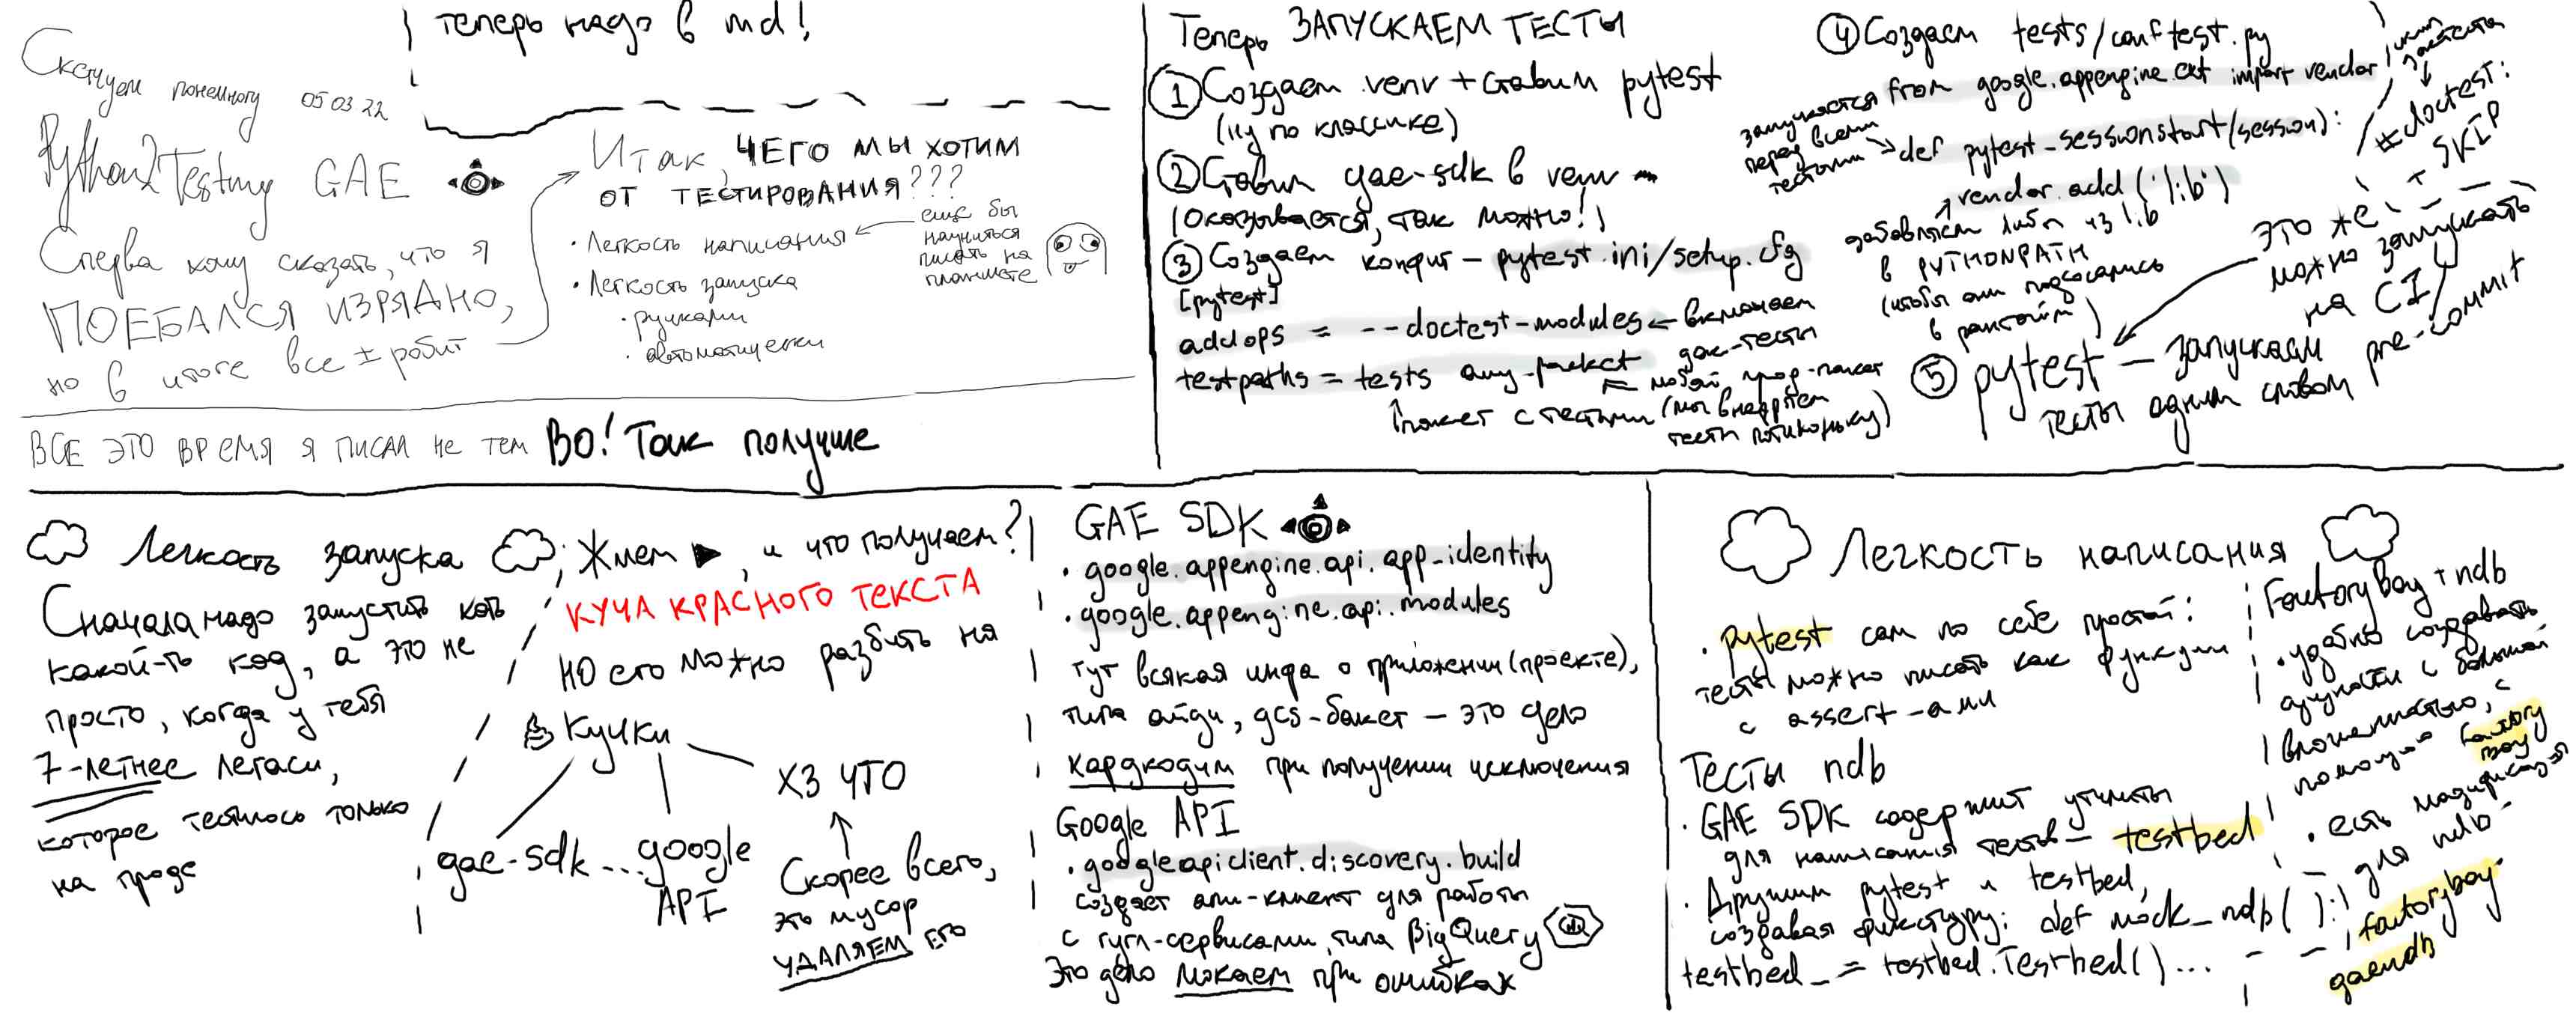 теперь надо в md!
Скетчуем понемногу 05 03 22
Python2 Testing GAE
Сперва хочу сказать, что я
ПОЕБАЛСЯ ИЗРЯДНО,
но в итоге все ± робит
Итак, ЧЕГО МЫ ХОТИМ
ОТ ТЕСТИРОВАНИЯ???
• Легкость написания
еще бы
научиться
писать на
планшете
• Легкость запуска
• ручками
• автоматически
ВСЕ ЭТО ВРЕМЯ Я ПИСАЛ НЕ ТЕМ ВО! Так получше
Теперь ЗАПУСКАЕМ ТЕСТЫ
1 Создаем .venv + ставим pytest
(ну по классике)
2 Ставим gae-sdk в venv
(оказывается, так можно!)
3 Создаем конфиг – pytest.ini/setup.cfg
[pytest]
addops = --doctest-modules ← включаем
док-тесты
testpaths = tests any-packet
любой прод-пакет
пакет с тестами (мы внедряем
тесты потихоньку)
4 Создаем tests/conftest.py
from google.appengine.ext import vendor
запускается
перед всеми
тестами
def pytest_sessionstart(session):
vendor.add('lib')
добавляем либы из lib
в PYTHONPATH
(чтобы они подсосались
в рантайм)
#doctest:
SKIP
это же
можно запускать
на CI/
pre-commit
5 pytest – запускаем
тесты одним словом
Легкость запуска
Сначала надо запустить хоть
какой-то код, а это не
просто, когда у тебя
7-летнее легаси,
которое тестилось только
на проде
Жмем ▶, и что получаем?
КУЧА КРАСНОГО ТЕКСТА
НО его можно разбить на
кучки
gae-sdk ... google
API
ХЗ ЧТО
Скорее всего,
это мусор
УДАЛЯЕМ ЕГО
GAE SDK
• google.appengine.api.app_identity
• google.appengine.api.modules
тут всякая инфа о приложении (проекте),
типа айди, gcs-бакет – это дело
хардкодим при получении исключения
Google API
• googleapiclient.discovery.build
создает апи-клиент для работы
с гугл-сервисами, типа BigQuery
Это дело мокаем при ошибках
Легкость написания
• Pytest сам по себе простой:
тесты можно писать как функции
с assert-ами
Тесты ndb
• GAE SDK содержит утилиты
для написания тестов – testbed
• Дружим pytest и testbed,
создавая фикстуру: def mock_ndb():
testbed_ = testbed.Testbed()...
FactoryBoy + ndb
• удобно создавать
сущности с большой
вложенностью, с
помощью factory
boy
• есть модификация
для ndb –
factoryboy
gaendb